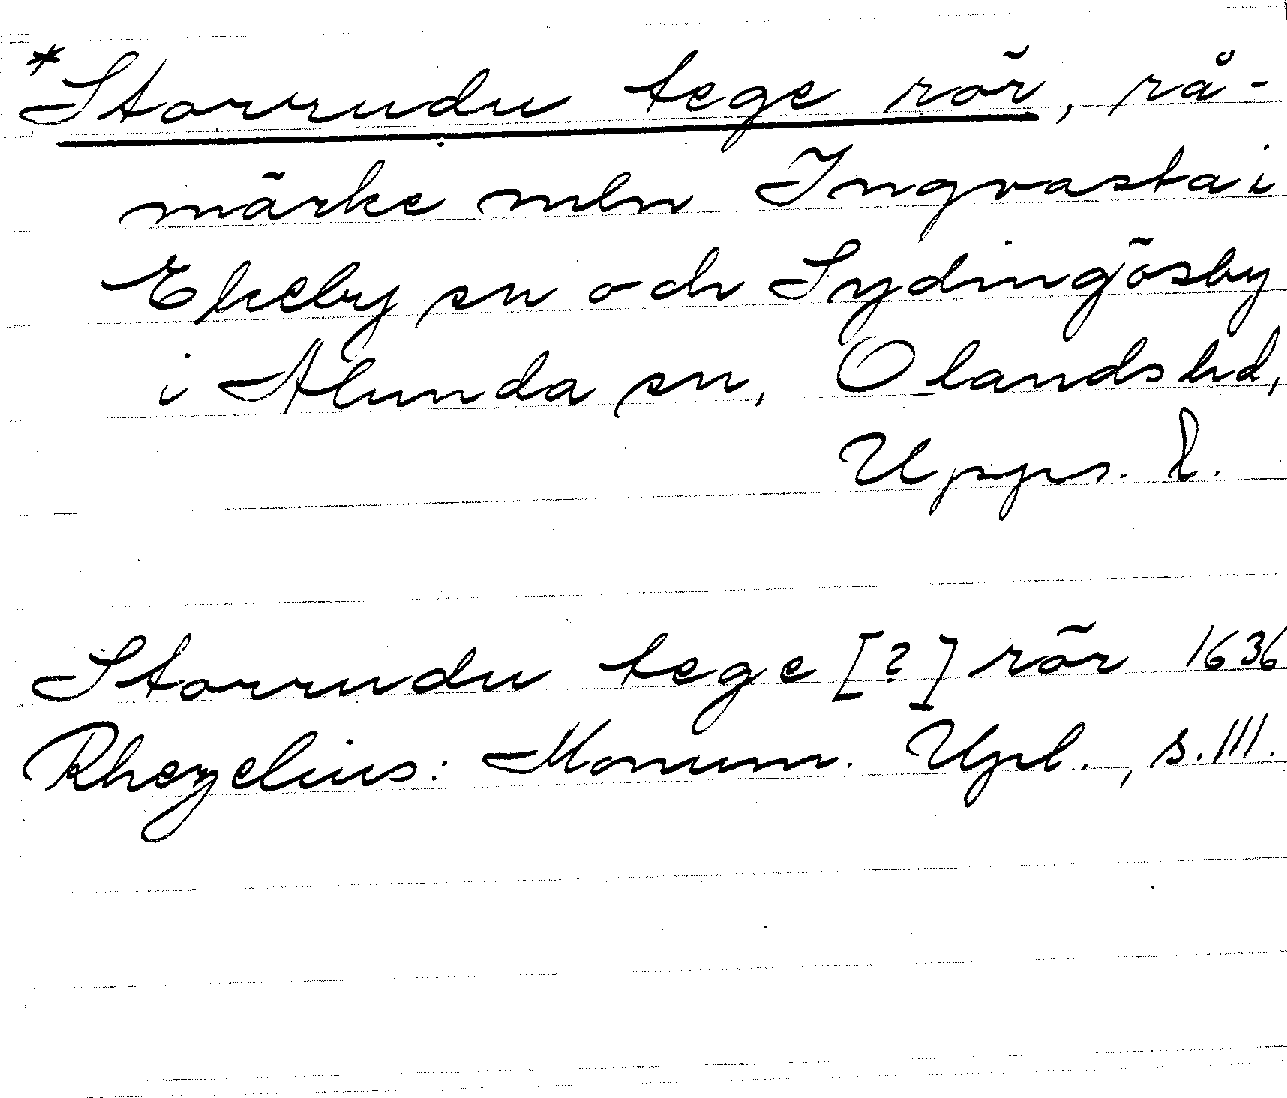 *Storrudu tege rör, rå-
märke mln Ingvasta i
Ekeby sn och Sydingösby
i Alunda sn, Olands hd,
Upps. l.
Storrudu tege [?] rör 1636
Rhezelius: Monum. Upl., s. 111.